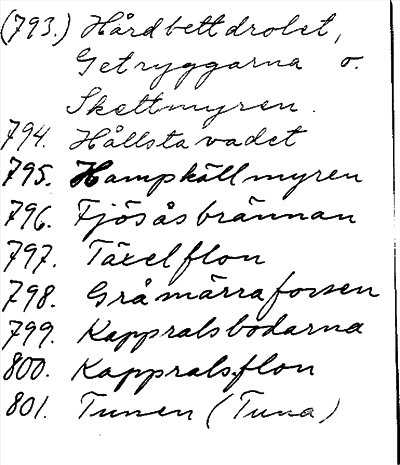 (793.) Hårdbettdrolet,
Getryggarna o.
Skettmyren.
794. Hållsta vadet
795. Hampkällmyren
796. Fjösåsbrännan
797. Täxelflon
798. Gråmärraforsen
799. Kappralsbodarna
800. Kappralsflon
801. Tunen (Tuna)